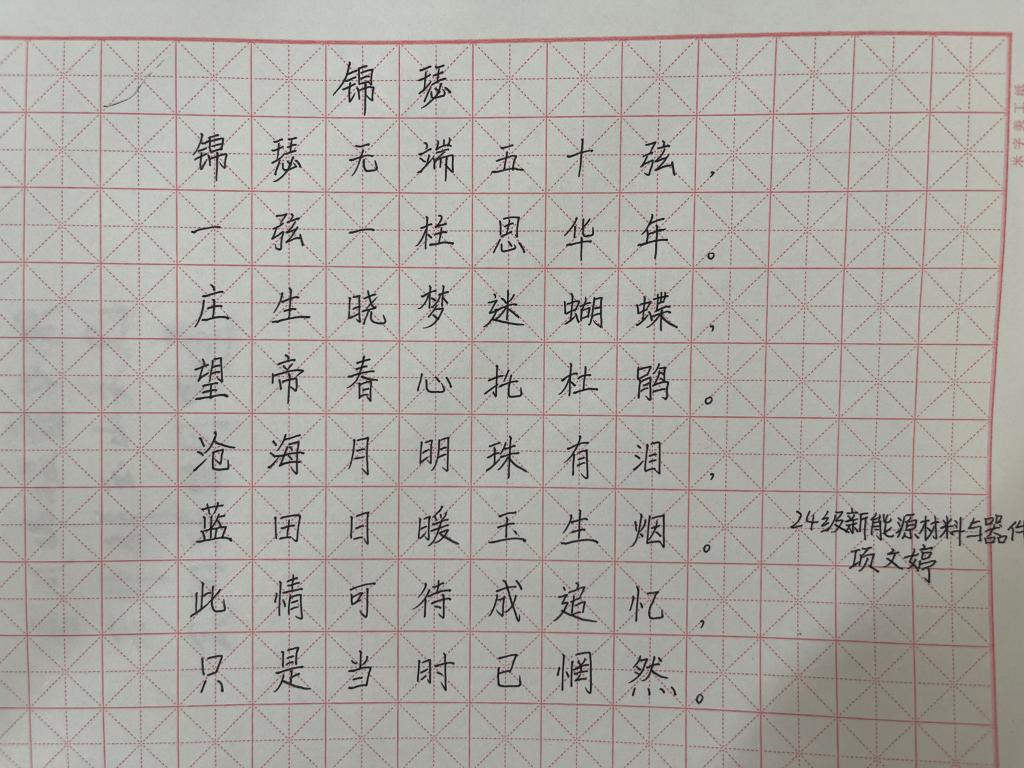 锦瑟
锦瑟无端五十弦，
一弦一柱思华年。
庄生晓梦迷蝴蝶，
望帝春心托杜鹃。
沧海月明珠有泪，
蓝田日暖玉生烟。
此情可待成追忆，
只是当时已惘然。
24级新能源材料与器件
项文婷